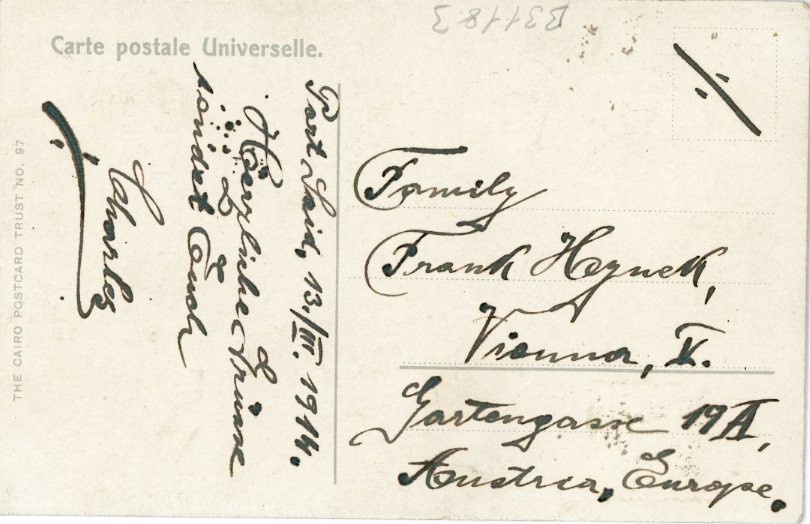 B31183
Carte postale Universelle.
Port Said, 13./III. 1914.
Herzliche Grüsse
sendet Euch
Charles
Family
Frank Heynek,
Vienna, V.
Gartengasse 19A,
Austria, Europe.
THE CAIRO POSTCARD TRUST NO. 97